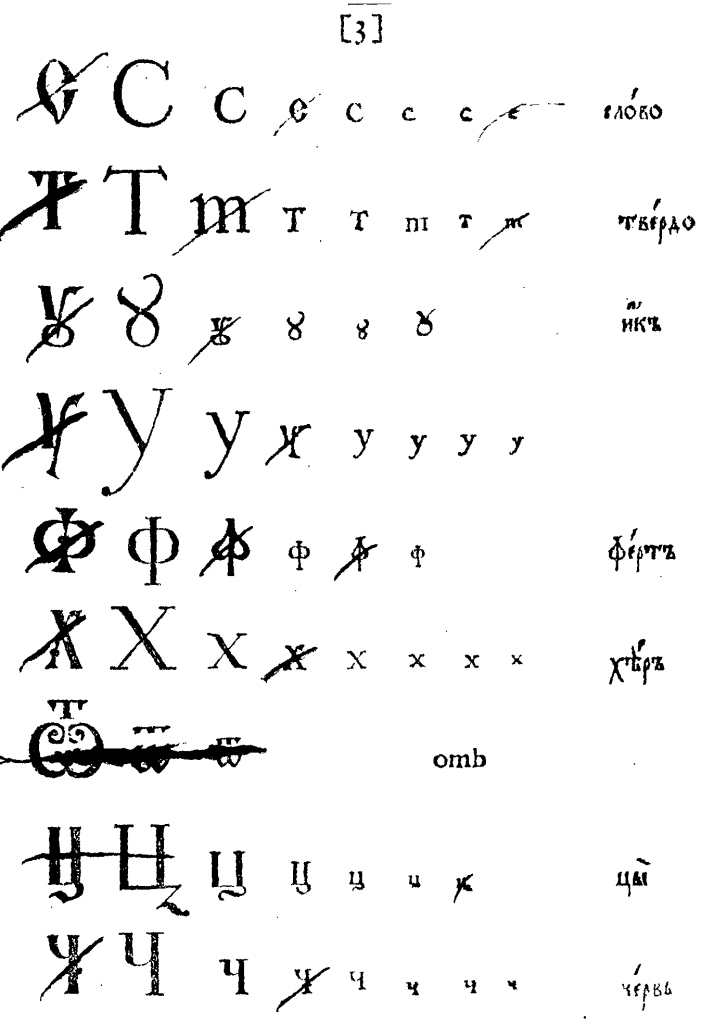 [3]
С С С С С С С С сло́во
Т Т т Т Т т т т тве́рдо
Ꙋ Ꙋ ꙋ ꙋ ꙋ ꙋ и҆́къ
У У у у у у у у
Ф Ф ф ф ф ф фе́ртъ
Х Х х х х х х х хѣ́ръ
Ѿ Ѿ ѿ отъ
Ц Ц ц ц ц ц ц цы̀
Ч Ч ч ч ч ч ч ч че́рвь